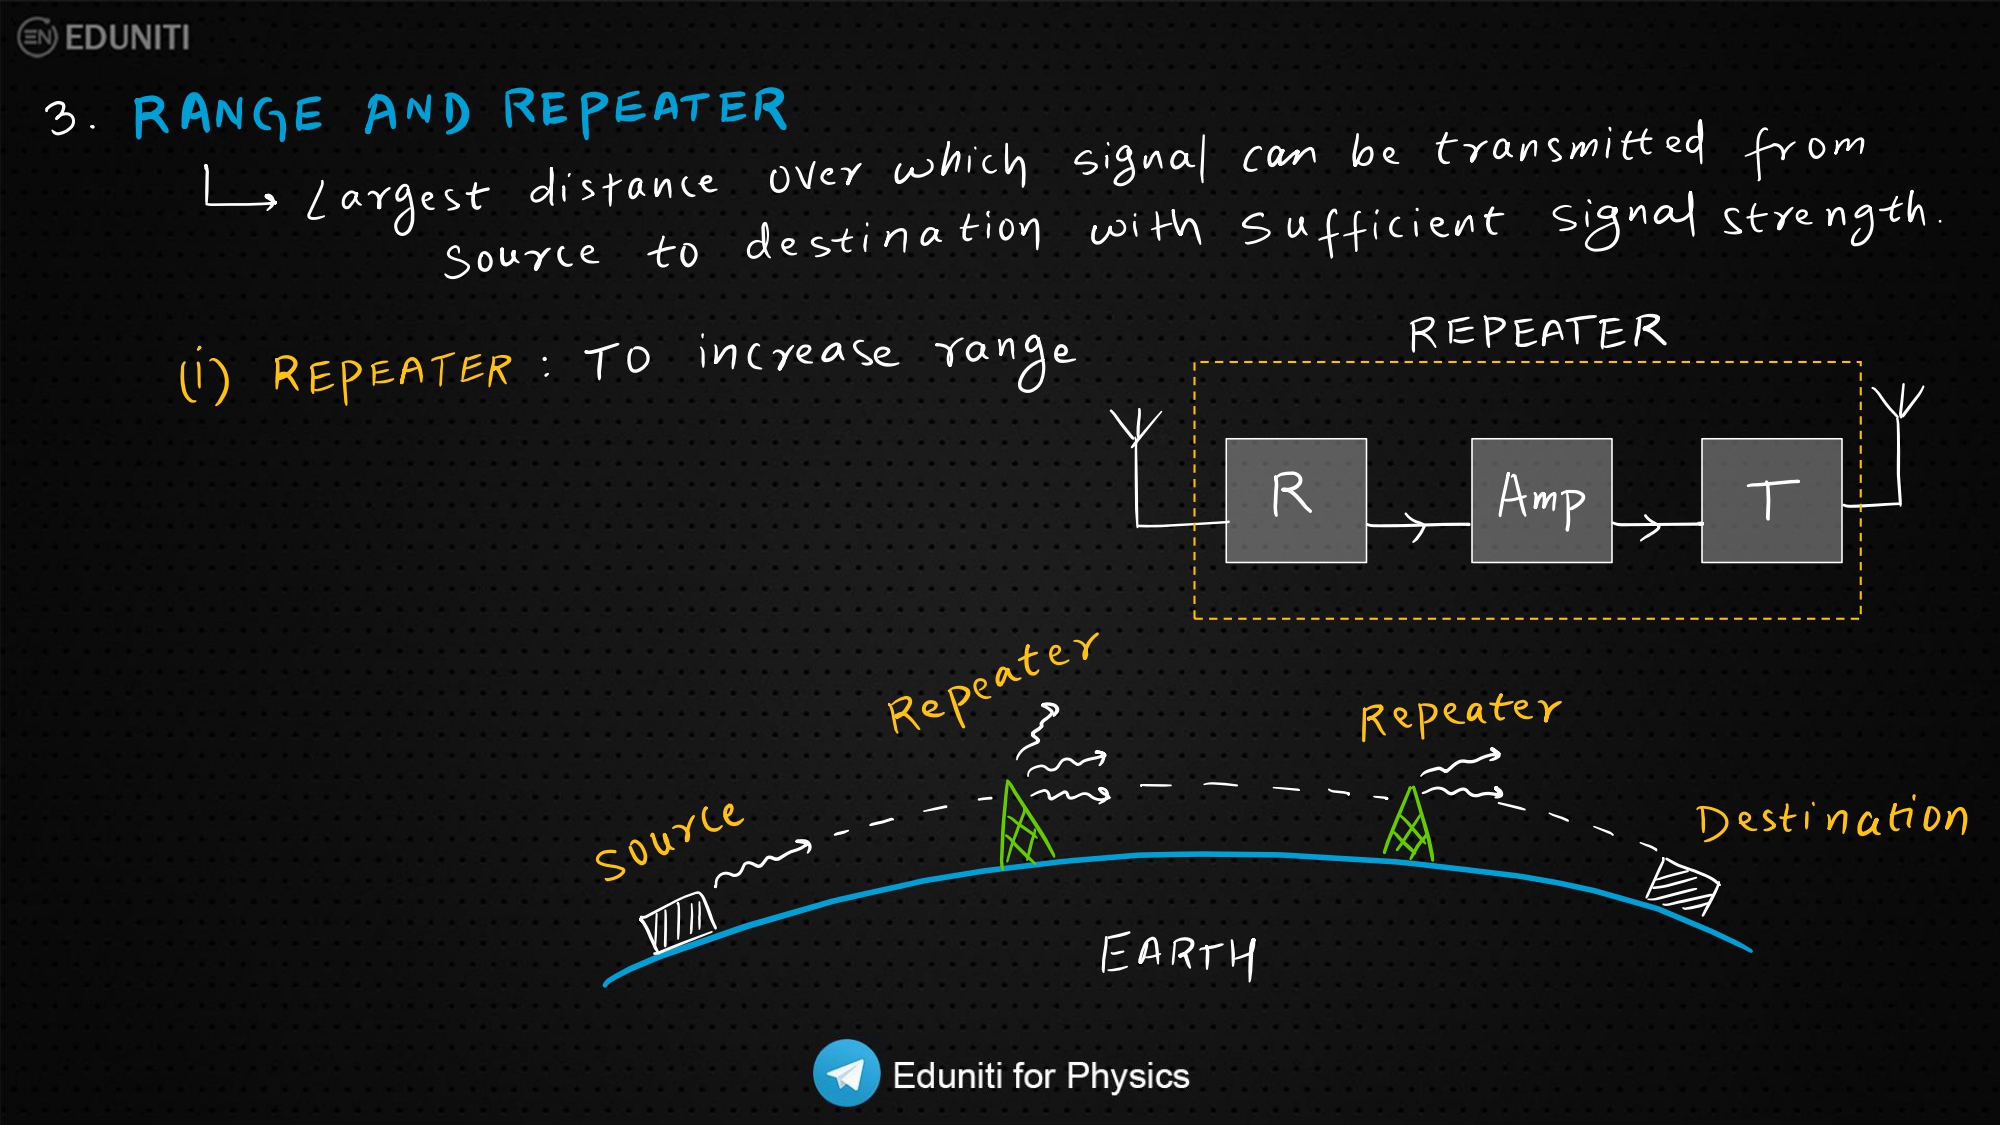 EN EDUNITI
3. RANGE AND REPEATER
Largest distance over which signal can be transmitted from
source to destination with sufficient signal strength.
(i) REPEATER : TO increase range
REPEATER
R
Amp
T
Repeater
Repeater
Source
Destination
EARTH
Eduniti for Physics